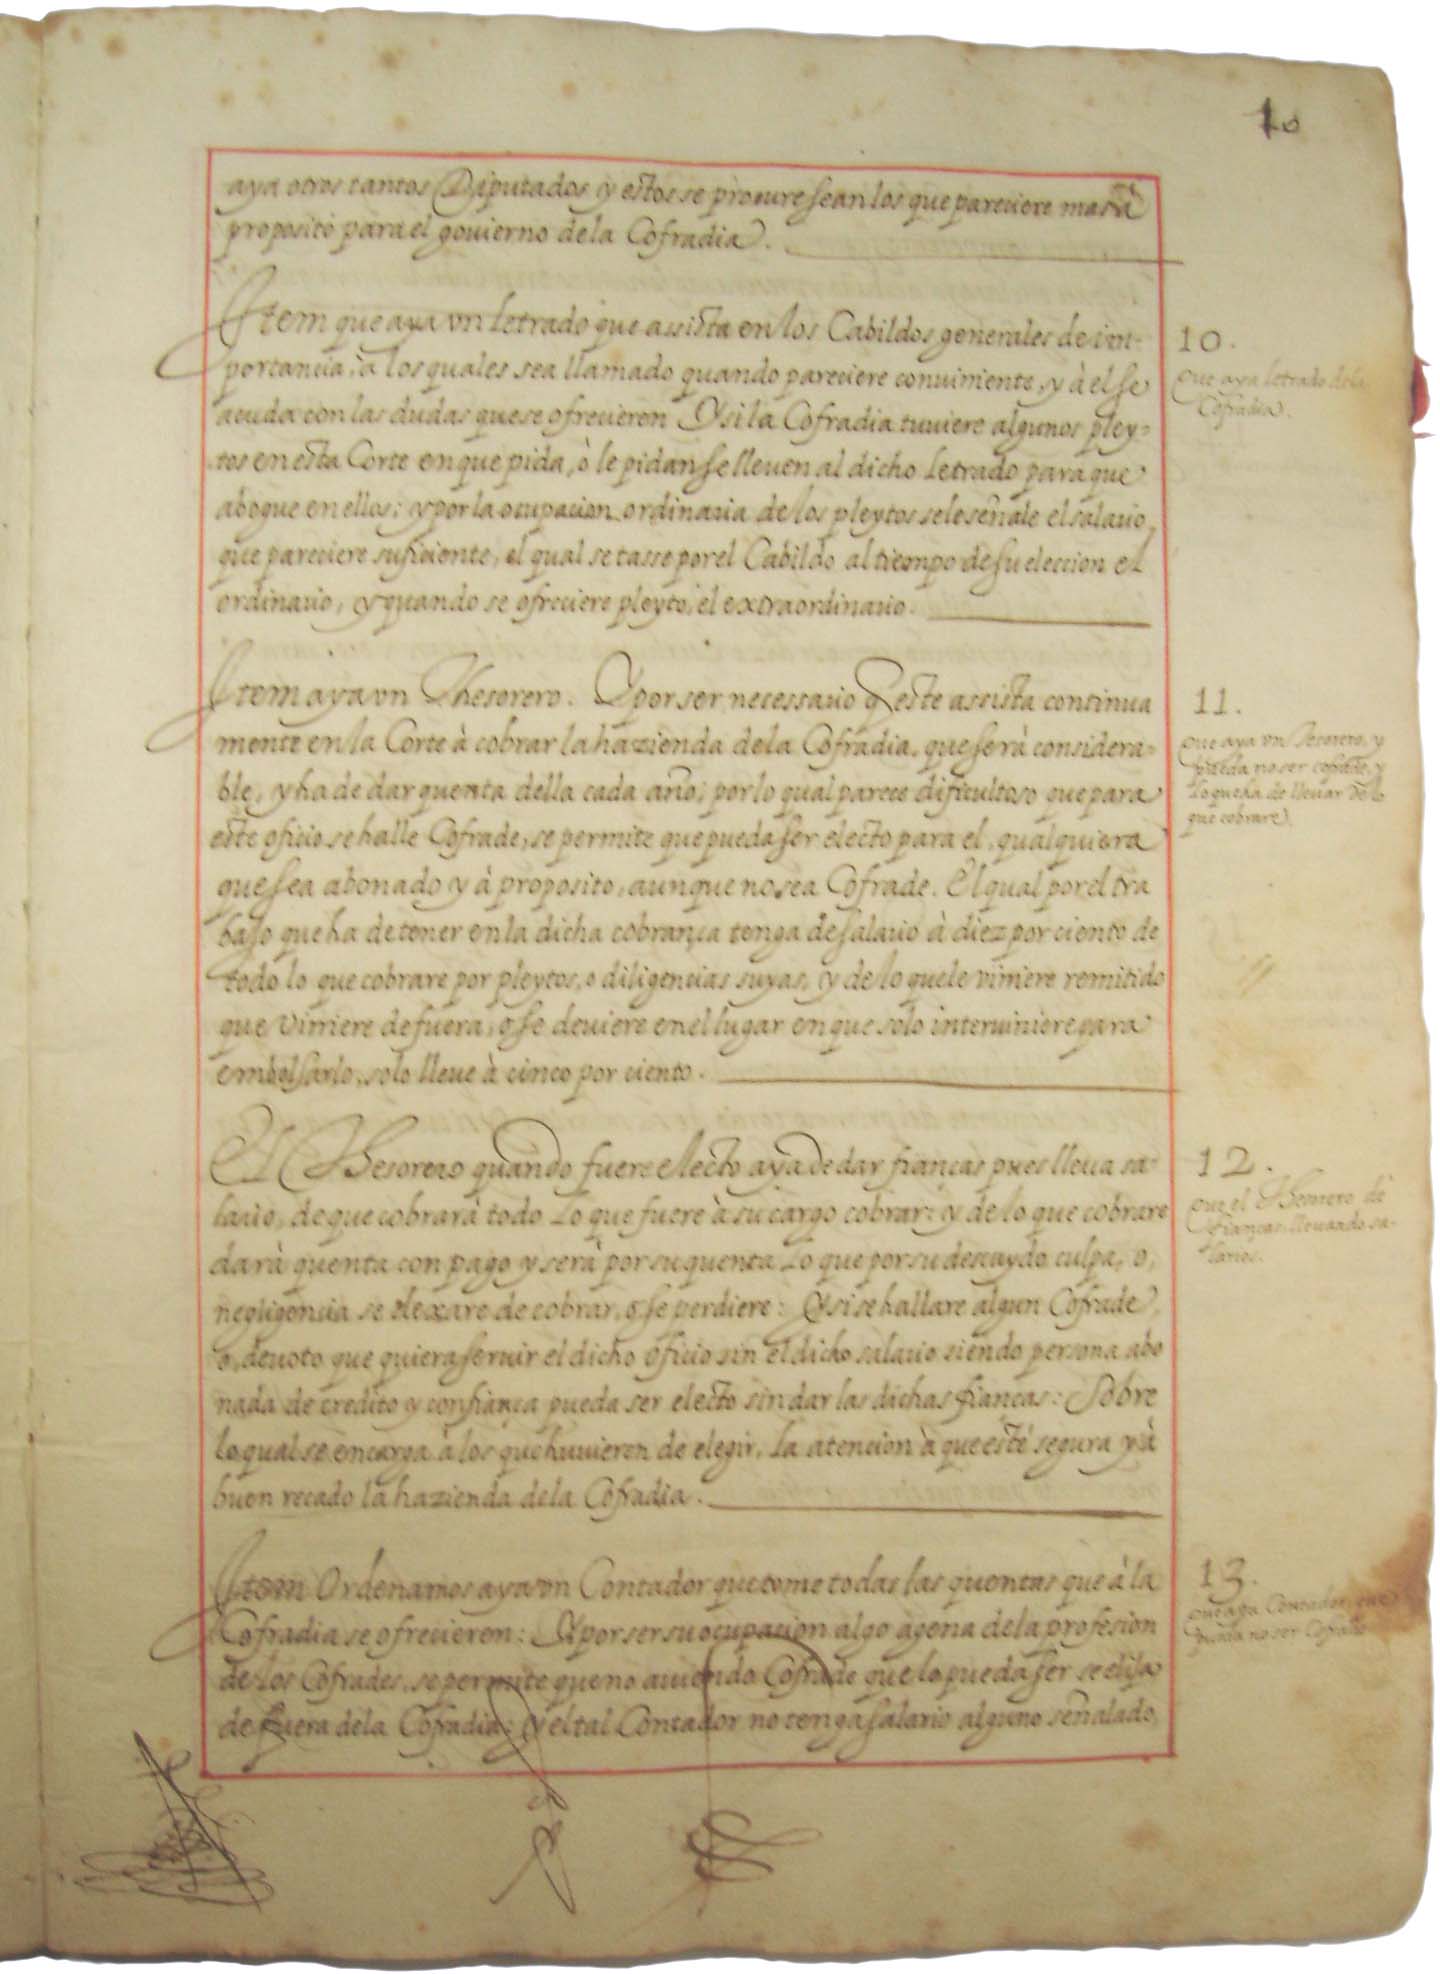 10
aya otros tantos Diputados y estos se procure sean los que pareciere mas à
proposito para el govierno de la Cofradia.
Item que aya vn Letrado que assista en los Cabildos generales de im-
portancia, à los quales sea llamado quando pareciere conuiniente, y à el se
acuda con las dudas que se ofrecieren Y si la Cofradia tuuiere algunos pley-
tos en esta Corte en que pida, ò le pidan se lleuen al dicho Letrado para que
abogue en ellos; y por la ocupacion ordinaria de los pleytos se le señale el salario,
que pareciere suficiente, el qual se tasse por el Cabildo al tiempo de su eleccion el
ordinario, y quando se ofreciere pleyto, el extraordinario.
10.
Que aya letrado de la
Cofradia.
Item aya vn Thesorero. Y por ser necessario q este assista continua
mente en la Corte à cobrar la hazienda de la Cofradia, que serà considera-
ble, y ha de dar quenta della cada año; por lo qual parece dificultoso que para
este oficio se halle Cofrade, se permite que pueda ser electo para el, qualquiera
que sea abonado y à proposito, aunque no sea Cofrade. El qual por el tra
bajo que ha de tener en la dicha cobrança tenga de salario à diez por ciento de
todo lo que cobrare por pleytos, o diligencias suyas, y de lo que le viniere remitido
que viniere de fuera, o se deuiere en el lugar en que solo interuiniere para
embolsarlo, solo lleue à cinco por ciento.
11.
Que aya vn Tesorero, y
pueda no ser cofrade, y
lo que ha de lleuar de lo
que cobrare
El Thesorero quando fuere electo aya de dar fianças pues lleua sa-
lario, de que cobrarà todo lo que fuere à su cargo cobrar: y de lo que cobrare
darà quenta con pago y serà por su quenta lo que por su descaydo culpa, o,
negligencia se dexare de cobrar, o se perdiere: Y si se hallare algun Cofrade,
o, deuoto que quiera seruir el dicho oficio sin el dicho salario siendo persona abo
nada de credito y confiança pueda ser electo sin dar las dichas fianças: Sobre
lo qual se encarga à los que huuieren de elegir, la atencion à que esté segura y à
buen recado la hazienda de la Cofradia.
12.
Que el Thesorero de
fianças lleuando sa-
larios.
Item Ordenamos aya vn Contador que tome todas las quentas que à la
Cofradia se ofrecieren: Y por ser su ocupacion algo agena de la profesion
de los Cofrades, se permite que no auiendo Cofrade que lo pueda ser se elija
de fuera de la Cofradia; y el tal Contador no tenga salario alguno señalado,
13.
Que aya Contador, que
pueda no ser Cofrade